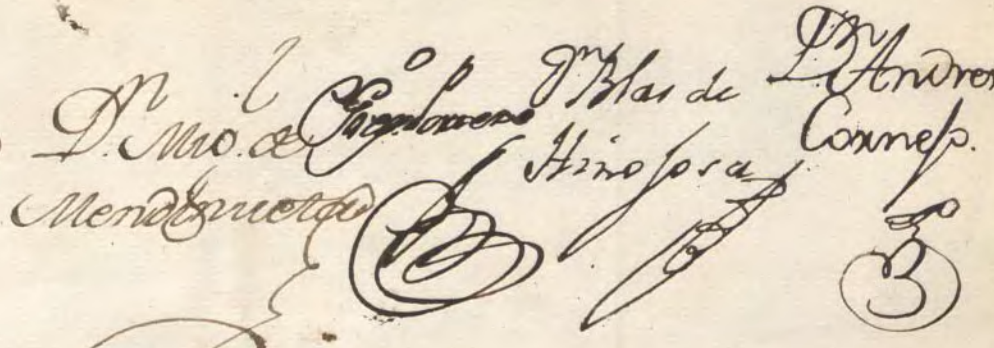 Dn. Migl. de
Mendinueta
Dn Blas de
Hinojosa
Dn Andres
Cornejo.